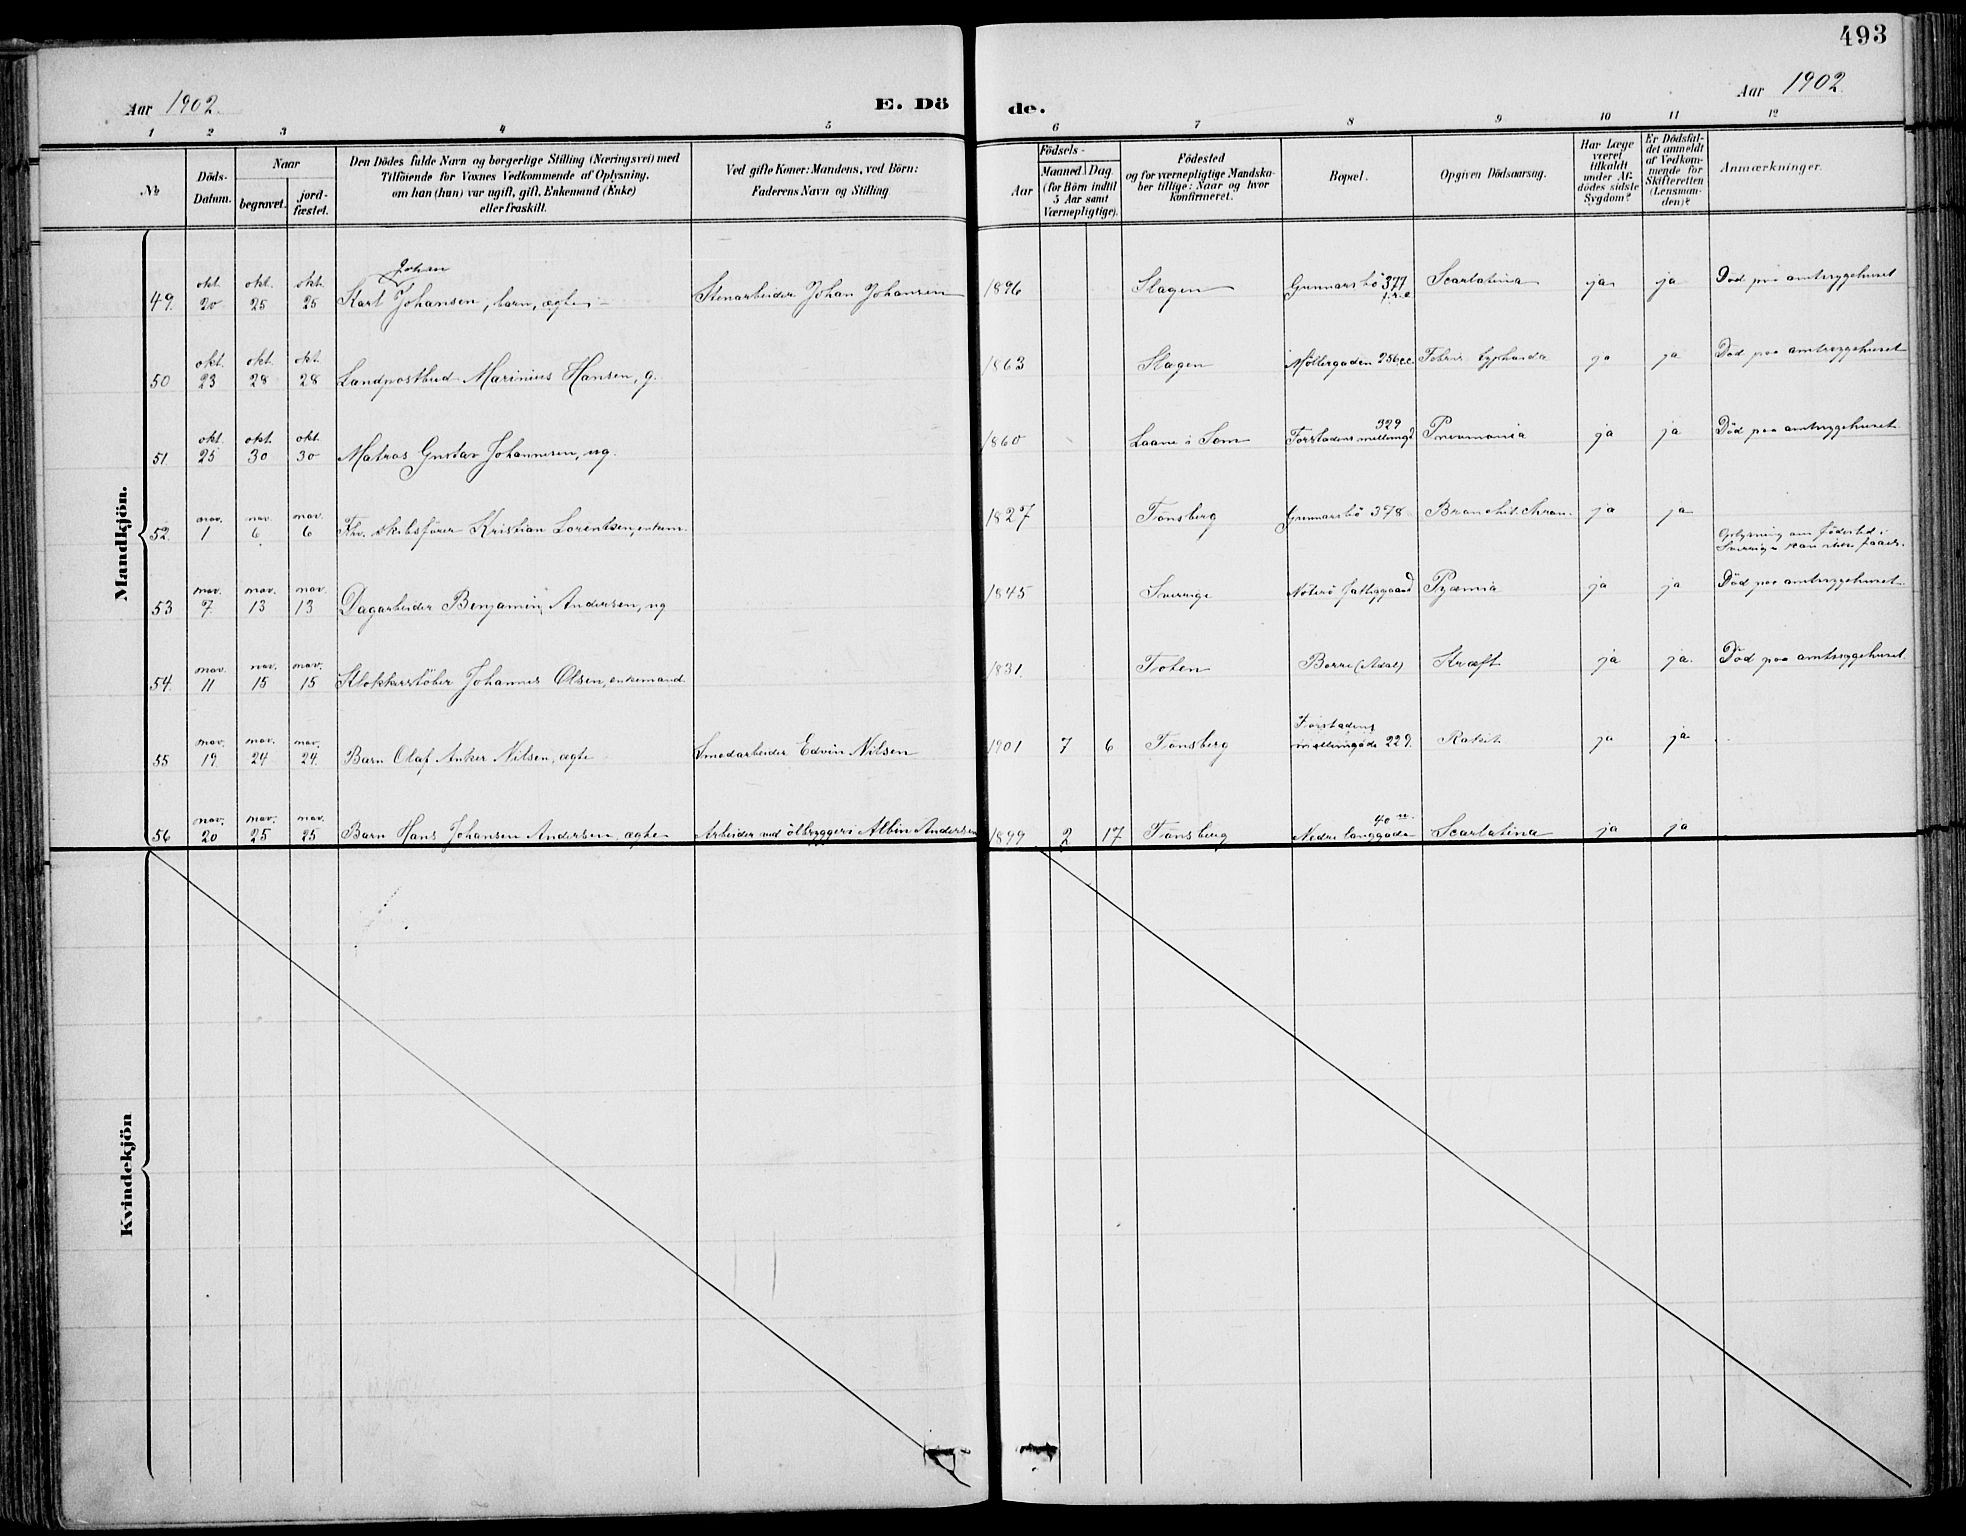 493
Aar 1902.
E. Dö
de.
Aar 1902.
1 2 3 4 5 6 7 8 9 10 11 12
№
Döds-
Datum.
Naar
begravet.
jord-
fæstet.
Den Dödes fulde Navn og borgerlige Stilling (Næringsvei) med
Tilföiende for Voxnes Vedkommende af Oplysning,
om han (hun) var ugift, gift, Enkemand (Enke)
eller fraskilt.
Ved gifte Koner: Mandens, ved Börn:
Faderens Navn og Stilling
Födsels-
Aar
Maaned Dag
(for Börn indtil
5 Aar samt
Værnepligtige).
Födested
og for værnepligtige Mandska-
ber tillige: Naar og hvor
konfirmeret.
Bopæl.
Opgiven Dödsaarsag.
Har Læge
været
tilkaldt
under Af-
dödes sidste
Sygdom?
Er Dödsfal-
det anmeldt
af Vedkom-
mende for
Skifteretten
(Lensman-
den)?
Anmærkninger.
Mandkjön.
49. okt. 20 okt. 25 okt. 25 Karl Johan Johansen, barn, ægte Stenarbeider Johan Johansen 1896 Slagen Gunnarsbö 377 Scarlatina ja ja Död paa amtssygehuset
50 okt. 23 okt. 28 okt. 28 Landpostbud Marinius Hansen, g. 1863 Slagen Möllergaden 256 Febris typhoida ja ja Död paa amtssygehuset
51. okt. 25 okt. 30 okt. 30 Matros Gustav Johannesen, ug. 1860 Laane i Sem Forstadens mellemgd. 329 Pneumonia ja ja Död paa amtssygehuset
52. nov. 1 nov. 6 nov. 6 Fhv. skibsförer Kristian Lorentsen, enkem. 1827 Tönsberg Gunnarsbö 378 Bronchit. chron. ja ja
Oplysning om födested i
Sverige kan ikke faaes.
53 nov. 7. nov. 13 nov. 13 Dagarbeider Benjamin Andersen, ug 1845 Sverrige Nöterö fattiggaard Pyæmia ja ja Död paa amtssygehuset
54. nov. 11 nov. 15 nov. 15 Klokkestöber Johannes Olsen, enkemand. 1831. Toten Borre (Adal) Kræft ja ja. Död paa amtssygehuset.
55 nov. 19. nov. 24 nov. 24. Barn Olaf Anker Nilsen, ægte Smedarbeider Edvin Nilsen 1901 7 6 Tönsberg Forstadens mellemgade 229. Rakit ja ja
56 nov. 20 nov. 25 nov. 25 Barn Hans Johansen Andersen, ægte Arbeider ved ölbryggeri Albin Andersen 1899 2 17 Tönsberg Nedre langgade 40 Scarlatina ja ja
Kvindekjön